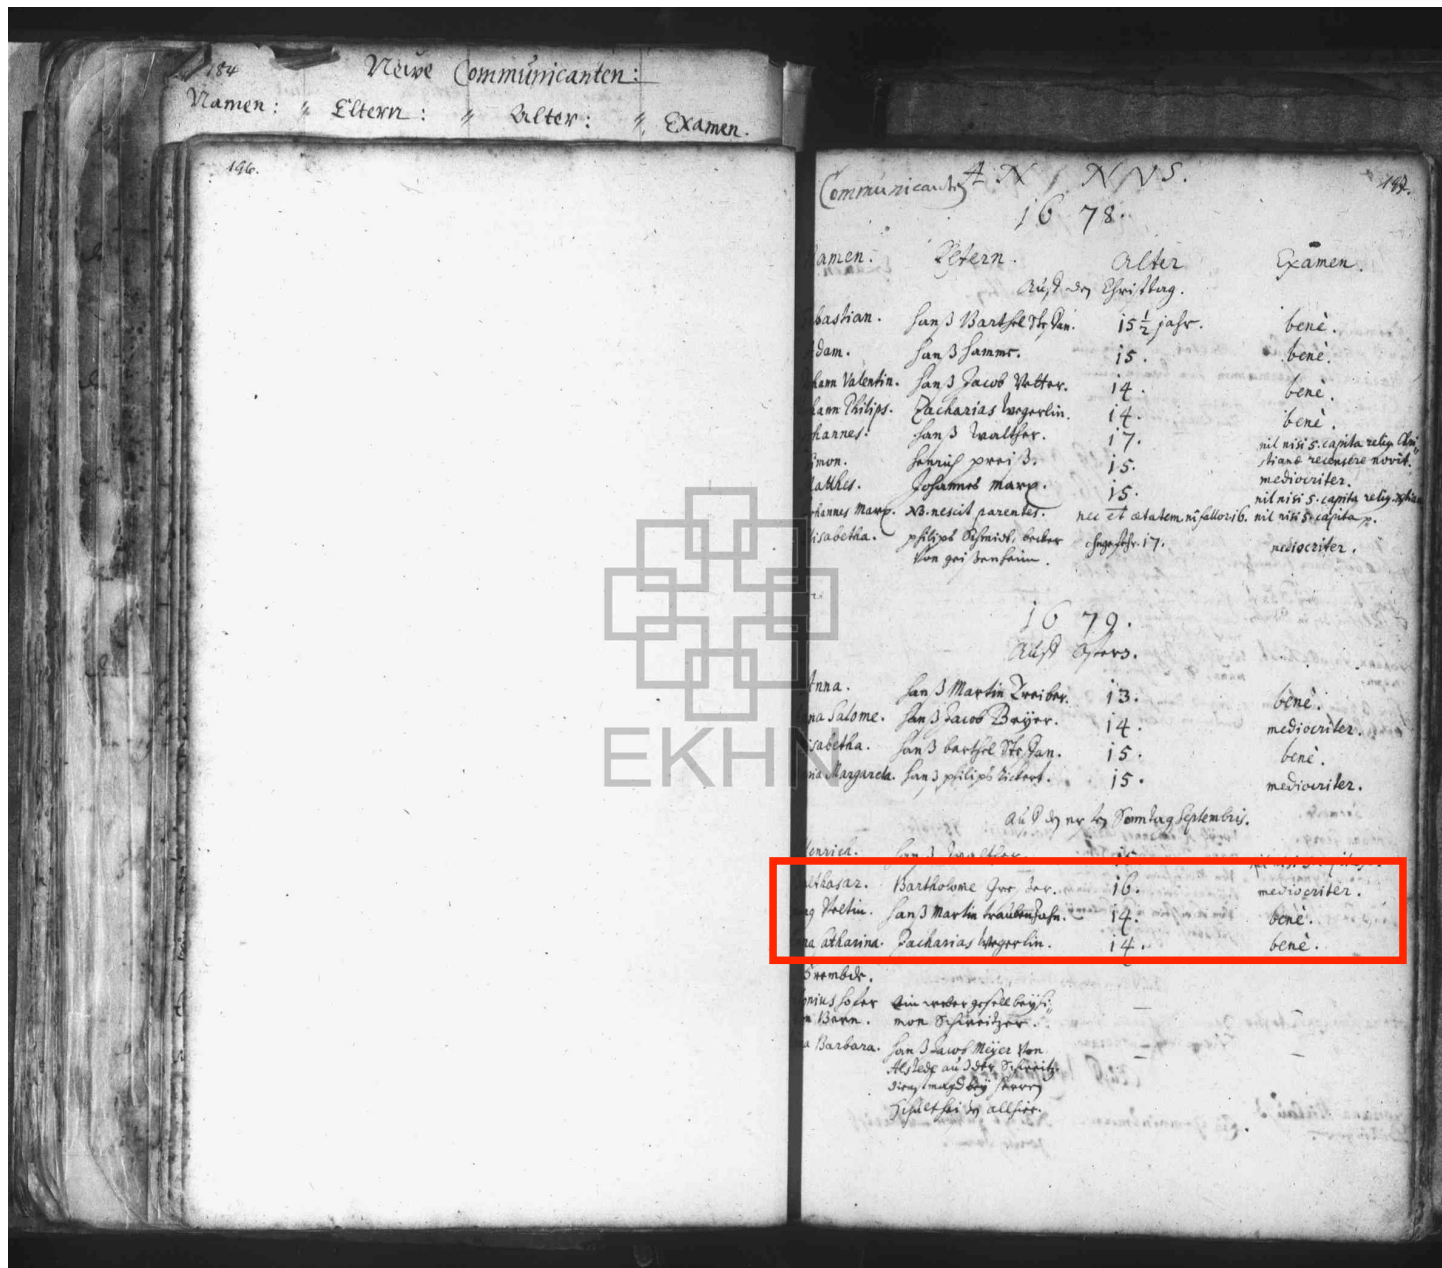 184
Neiwe Communicanten:
Namen: " Eltern: " Alter: " Examen.
196.
Communicanten ANNNVS. 197.
1678.
amen: Eltern. Alter Examen.
Auff den Christag.
bastian. Hanß Barthel Stephan. 15 1/2 jahr. benè.
dam. Hanß Hamms. 15. benè.
hann Valentin. Hanß Jacob Vetter. 14. benè.
hann Philips. Zacharias Wegerlin. 14. benè.
hannes. Hanß Walther. 17. nil nisi 5. capita relig. Chri=
mon. Henrich preiß. 15. stianæ recensere novit.
atthes. Johannes Marx. 15. mediocriter.
nil nisi 5. capita relig.
hannes Marx. NB. nescit parentes. nec et ætatem, ni fallor 16. nil nisi 5. capita
isabetha. philips Schmidt, becker 17. mediocriter.
Von geißenheim.
1679.
Auff Ostern.
Anna. Hanß Martin Treiber. 13. benè.
na Salome. Hanß Jacob Beÿer. 14. mediocriter.
isabetha. Hanß barthel Stephan. 15. benè.
na Margareta. Hanß philips 15. mediocriter.
Auff den ersten Sonntag Septembris.
enrich. Hanß Walther. 15
althasar. Bartholome 16. mediocriter.
rg Veltin. Hanß Martin traubenhahn. 14. benè.
na Catharina. Zacharias Wegerlin. 14. benè.
Frembde.
onius Hofer Ein weber gesell beÿ Si=
n Bern. mon Schweitzer.
a Barbara. Hanß Jacob Meÿer Von
auß der Schweitz
dienstmagd beÿ Herren
Schultheißen allhier.
EKHN